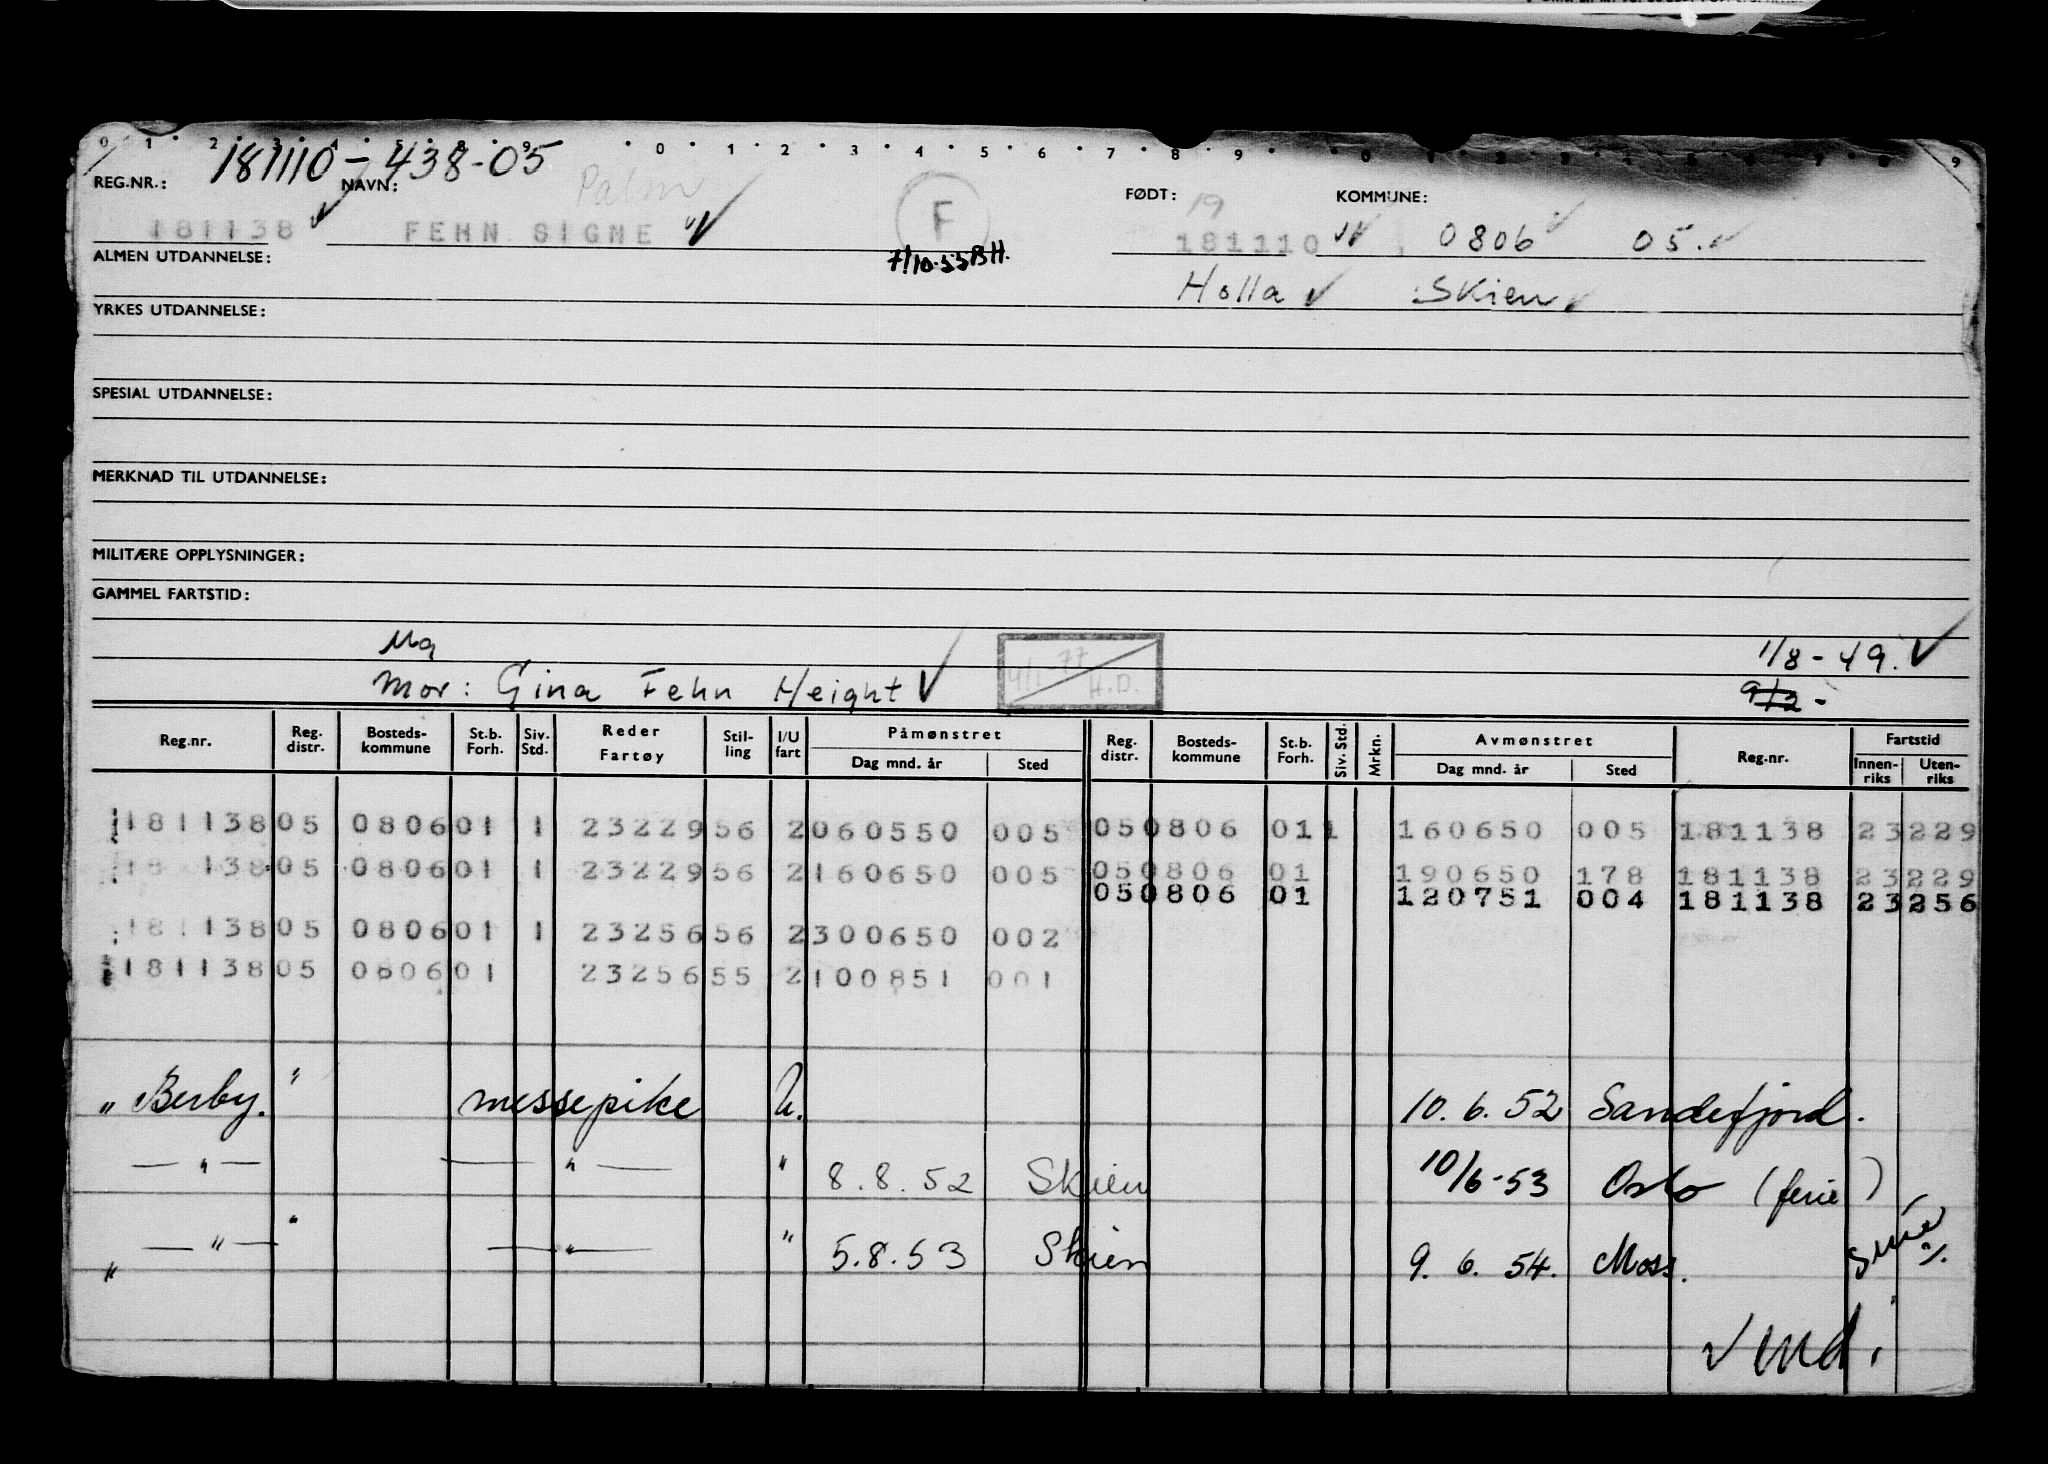 0 1 2 3 0 1 2 3 4 5 6 7 8 9 0 1 2 3 4 5 6 7 8 9
181110-438-05
REG.NR.: NAVN: Palm FØDT: 19 KOMMUNE:
181138 FEHN SIGNE F 181110 0806 05.
ALMEN UTDANNELSE: 7/10.55 BH.
Holla Skien
YRKES UTDANNELSE:
SPESIAL UTDANNELSE:
MERKNAD TIL UTDANNELSE:
MILITÆRE OPPLYSNINGER:
GAMMEL FARTSTID:
1/8-49.
Mor: Gina Fehn Height 4/1-77 H.D. 9/12-
Reg.nr. Reg. distr. Bosteds-kommune St.b. Forh. Siv. Std. Reder Fartøy Stil-ling I/U fart Påmønstret Dag mnd. år Sted Reg. distr. Bosteds-kommune St.b. Forh. Siv. Std. Mrkn. Avmønstret Dag mnd. år Sted Reg.nr. Fartstid Innen-riks Uten-riks
181138 05 0806 01 1 23229 56 2 060550 005 05 0806 01 1 160650 005 181138 23229
18 138 05 0806 01 1 23229 56 2 160650 005 05 0806 01 190650 178 181138 23229
05 0806 01 120751 004 181138 23256
181138 05 0806 01 1 23256 56 2 300650 002
181138 05 0806 01 23256 55 2 100851 001
" Berby. " messepike U. 10.6.52 Sandefjord.
— " — — " — " 8.8.52 Skien 10/6-53 Oslo (ferie)
" — " — " — " — " 5.8.53 Skien 9.6.54. Moss.